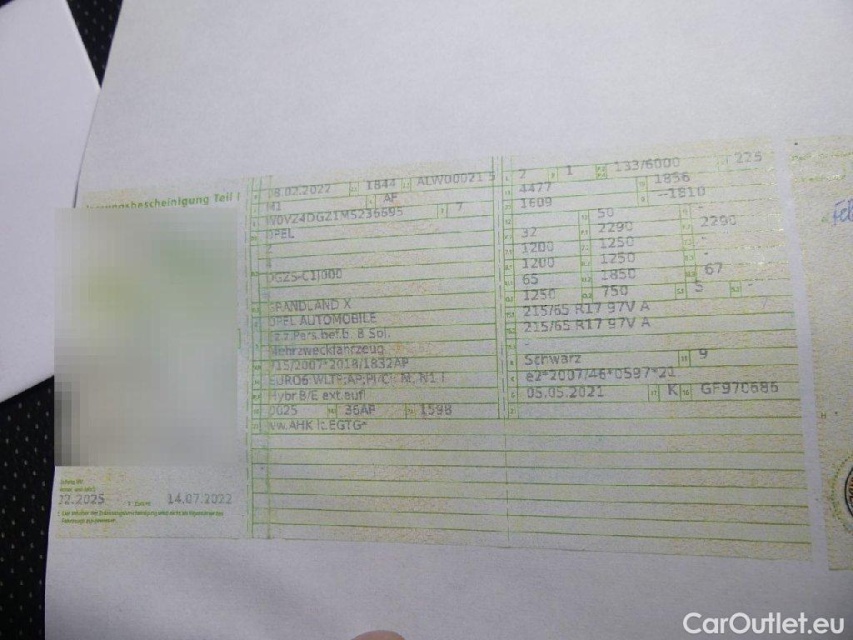 ungsbescheinigung Teil I
8.02.2022 1844 ALW00021 5
M1 AF
W0VZ4DGZ1MS236695 7
OPEL
Z
4
DGZS-C1J000
GRANDLAND X
OPEL AUTOMOBILE
Fz.z.Pers.bef.b. 8 Spl.
Mehrzweckfahrzeug
715/2007*2018/1832AP
EURO6;WLTP;AP;PI/CI; M, N1 I
Hybr.B/E ext.aufl
0025 36AP 1598
ww.AHK lt.EGTG*
2 1 133/6000 225
4477 1856
1609 --1810
50 -
32 2290 2290
1200 1250 -
1200 1250 -
65 1850 67
1250 750 5 -
215/65 R17 97V A
215/65 R17 97V A
-
Schwarz 9
e2*2007/46*0597*21
05.05.2021 K GF970686
2.2025 14.07.2022
CarOutlet.eu